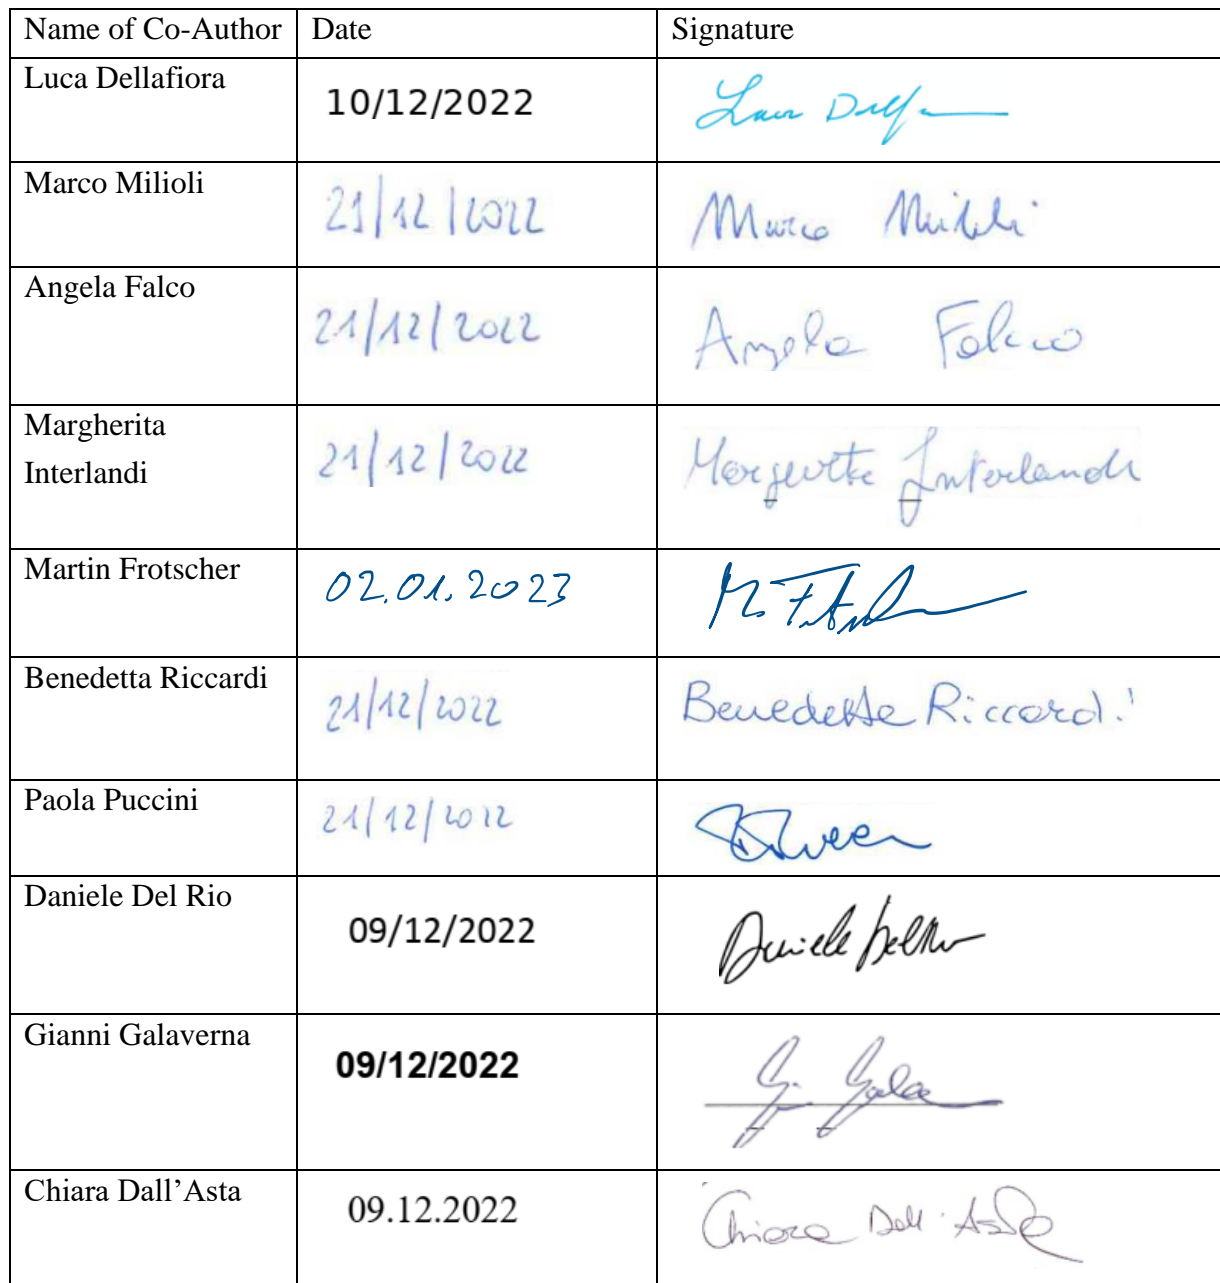 Name of Co-Author Date Signature
Luca Dellafiora 10/12/2022
Marco Milioli 21/12/2022 Marco Milioli
Angela Falco 21/12/2022 Angela Falco
Margherita
Interlandi 21/12/2022 Margherita Interlandi
Martin Frotscher 02.01.2023
Benedetta Riccardi 21/12/2022 Benedetta Riccardi
Paola Puccini 21/12/2022
Daniele Del Rio 09/12/2022 Daniele Del Rio
Gianni Galaverna 09/12/2022
Chiara Dall’Asta 09.12.2022 Chiara Dall'Asta